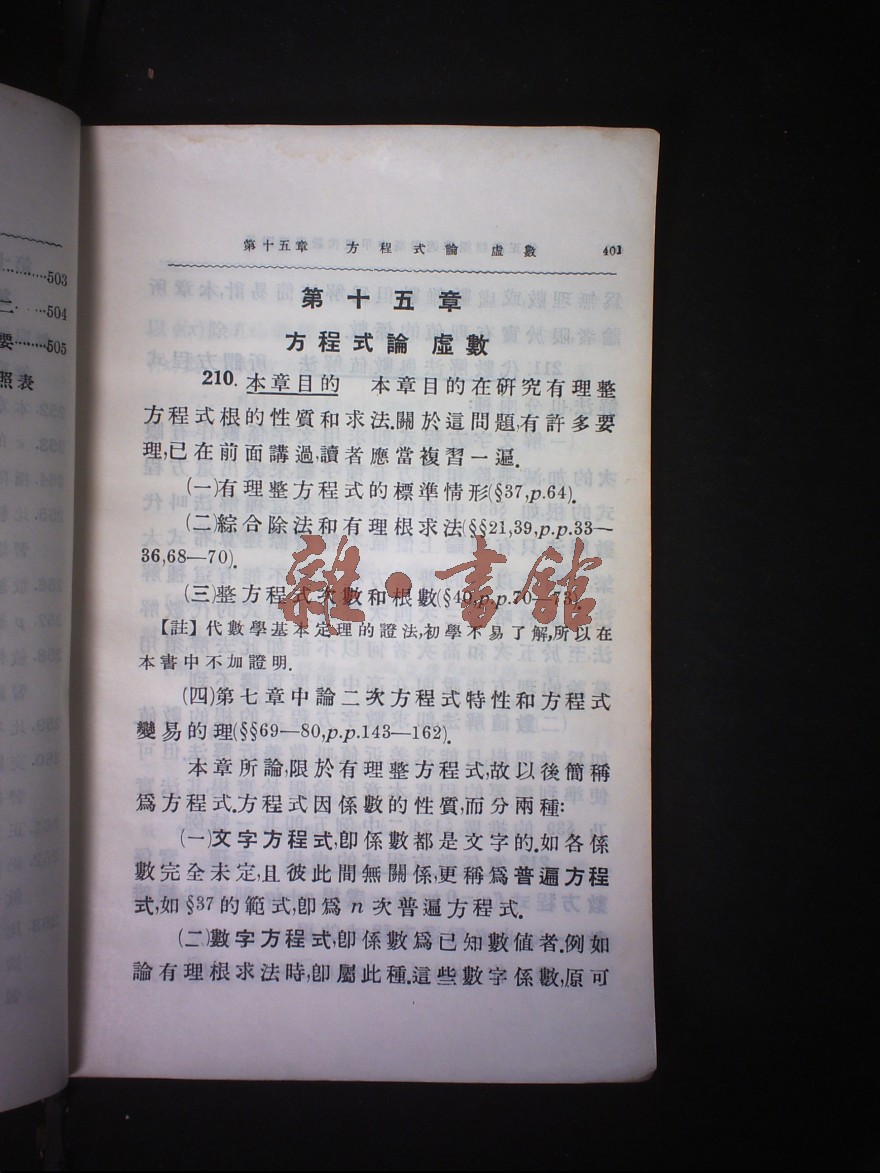 第十五章 方程式論 虛數 401
第十五章
方程式論 虛數
210. 本章目的 本章目的在研究有理整
方程式根的性質和求法.關於這問題,有許多要
理,已在前面講過,讀者應當複習一遍.
(一)有理整方程式的標準情形(§37,p.64).
(二)綜合除法和有理根求法(§§21,39,p.p.33—
36,68—70).
(三)整方程式次數和根數(§40,p.p.70—73).
【註】代數學基本定理的證法,初學不易了解,所以在
本書中不加證明.
(四)第七章中論二次方程式特性和方程式
變易的理(§§69—80,p.p.143—162).
本章所論,限於有理整方程式,故以後簡稱
爲方程式.方程式因係數的性質,而分兩種:
(一)文字方程式,卽係數都是文字的.如各係
數完全未定,且彼此間無關係,更稱爲普遍方程
式,如§37的範式,卽爲n次普遍方程式.
(二)數字方程式,卽係數爲已知數值者.例如
論有理根求法時,卽屬此種.這些數字係數,原可
雜·書館
503
二 504
要 505
照表